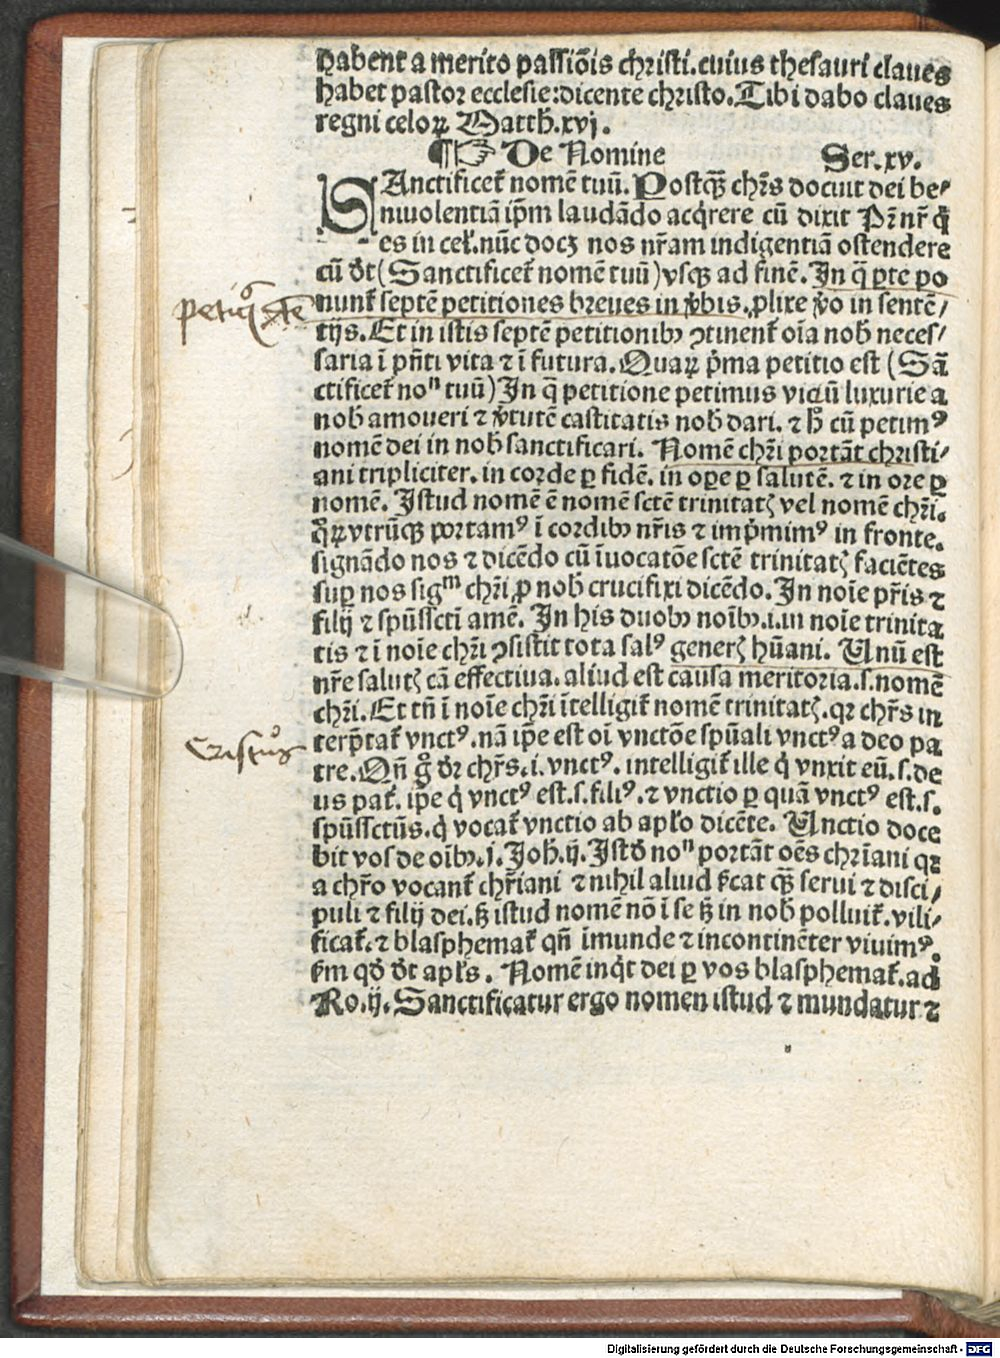 habent a merito passiōis christi.cuius thesauri claues
habet pastor ecclesie:dicente christo.Tibi dabo claues
regni celoꝝ Matth̄.xvj.
¶☞ De Nomine Ser.xv.
SAnctificet̄ nomē tuū. Postqȝ chr̄s docuit dei be⸗
niuolentiā ip̄m laudādo acq̇rere cū dixit Pr̄ nr̄ q̇
es in cel̄.nūc docȝ nos nr̄am indigentiā ostendere
cū dt̄ (Sanctificet̄ nomē tuū) vsqȝ ad finē. In q̄ ꝑte po
nunt̄ septē petitiones breues in v̄bis.ꝓlixe v̄o in sentē⸗
tijs. Et in istis septē petitionibꝰ ꝯtinent̄ oīa nob̄ neces⸗
saria ī pn̄ti vita ⁊ ī futura. Quaꝝ p̄ma petitio est (Sā
ctificet̄ noⁿ tuū) In q̄ petitione petimus viciū luxurie a
nob̄ amoueri ⁊ v̄tutē castitatis nob̄ dari. ⁊ h̄ cū petimꝰ
nomē dei in nob̄ sanctificari. Nomē chr̄i portāt christi⸗
ani tripliciter. in corde ꝑ fidē. in oꝑe ꝑ salutē. ⁊ in ore ꝑ
nomē. Istud nomē ē nomē sctē trinitatꝭ vel nomē chr̄i.
vtrūqȝ portamꝰ ī cordibꝰ nr̄is ⁊ imp̄mimꝰ in fronte.
signādo nos ⁊ dicēdo cū īuocatōe sctē trinitatꝭ faciētes
suꝑ nos sigᵐ chr̄i ꝓ nob̄ crucifixi dicēdo. In noīe pr̄is ⁊
filij ⁊ spūssctī amē. In his duobꝰ noībꝰ.i.in noīe trinita
tis ⁊ ī noīe chr̄i ꝯsistit tota salꝰ generꝭ hūani. Unū est
nr̄e salutꝭ cā effectiua. aliud est causa meritoria.s.nomē
chr̄i. Et tn̄ ī noīe chr̄i ītelligit̄ nomē trinitatꝭ.qꝛ chr̄s in
terp̄tat̄ vnctꝰ. nā ip̄e est oī vnctōe spūali vnctꝰ a deo pa
tre. Qn̄ g° dꝛ chr̄s.i.vnctꝰ. intelligit̄ ille q̇ vnxit eū.s.de
us pat̄. ip̄e q̇ vnctꝰ est.s.filiꝰ. ⁊ vnctio ꝑ quā vnctꝰ est.s.
spūssctūs.q̇ vocat̄ vnctio ab apl̄o dicēte. Unctio doce
bit vos de oībꝰ.j. Joh̄.ij. Istd̄ noⁿ portāt oēs chr̄iani qꝛ
a chr̄o vocant̄ chr̄iani ⁊ nihil aliud qȝ serui ⁊ disci⸗
puli ⁊ filij dei. sꝫ istud nomē nō ī se sꝫ in nob̄ polluit̄. vili⸗
ficat̄. ⁊ blasphemat̄ qn̄ īmunde ⁊ incontinēter viuimꝰ.
qd̄ dt̄ apl̄s. Nomē inq̇t dei ꝑ vos blasphemat̄.ad
Ro.ij. Sanctificatur ergo nomen istud ⁊ mundatur ⁊
Cristus
Digitalisierung gefördert durch die Deutsche Forschungsgemeinschaft - DFG